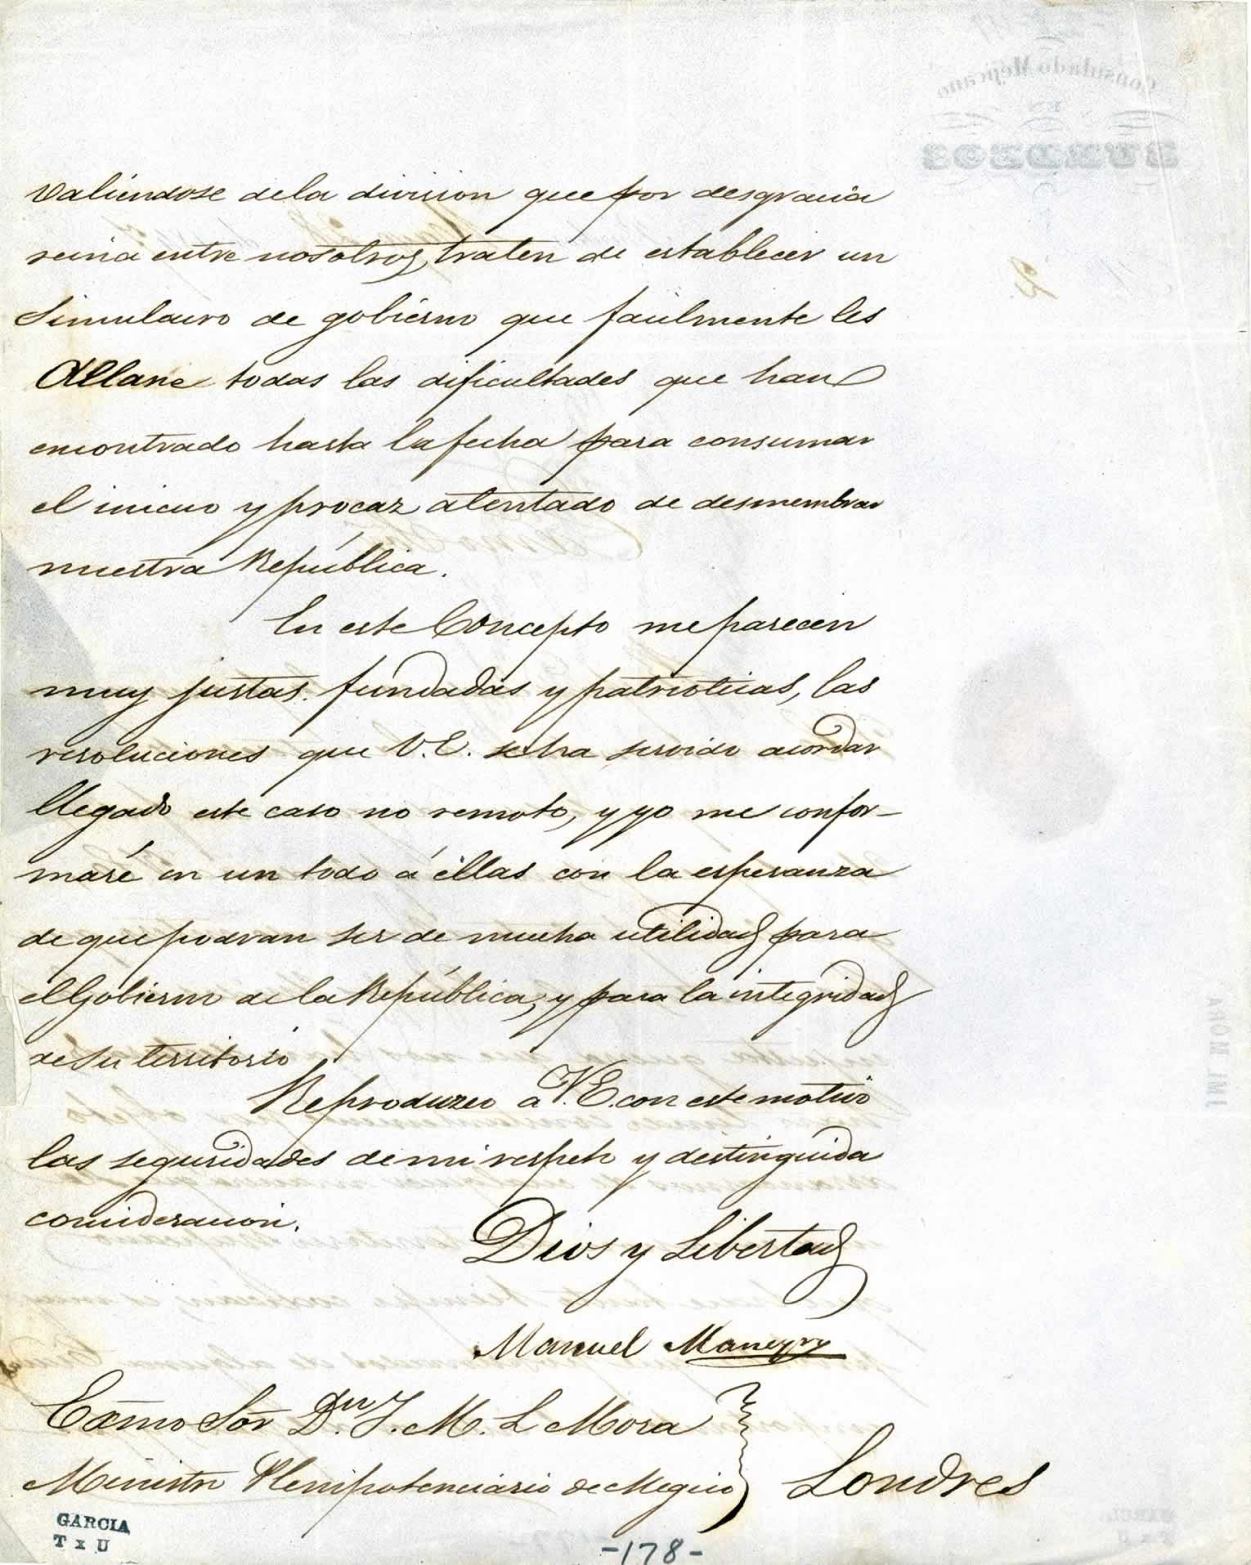 valiéndose dela division que por desgracia
reina entre nosotros, traten de establecer un
Simulacro de gobierno que facilmente les
Allane todas las dificultades que han
encontrado hasta la fecha para consumar
el inicuo y procaz atentado de desmembrar
nuestra República.
En este Concepto me parecen
muy justas, fundadas y patrioticas, las
resoluciones que V.E. se ha servido acordar
llegado este caso no remoto, y yo me confor-
maré en un todo á éllas con la esperanza
de que podran ser de mucha utilidad para
el Gobierno de la República, y para la integridad
de su territorio
Reproduzco a V.E. con este motivo
las seguridades de mi respeto y distinguida
consideracion.
Dios y Libertad
Manuel
Exmo Sor Dn. J. M. L Mora
Ministro Plenipotenciario de Megico
Londres
GARCIA
T x U
-178-
Consulado Mejicano
EN
BURDEOS